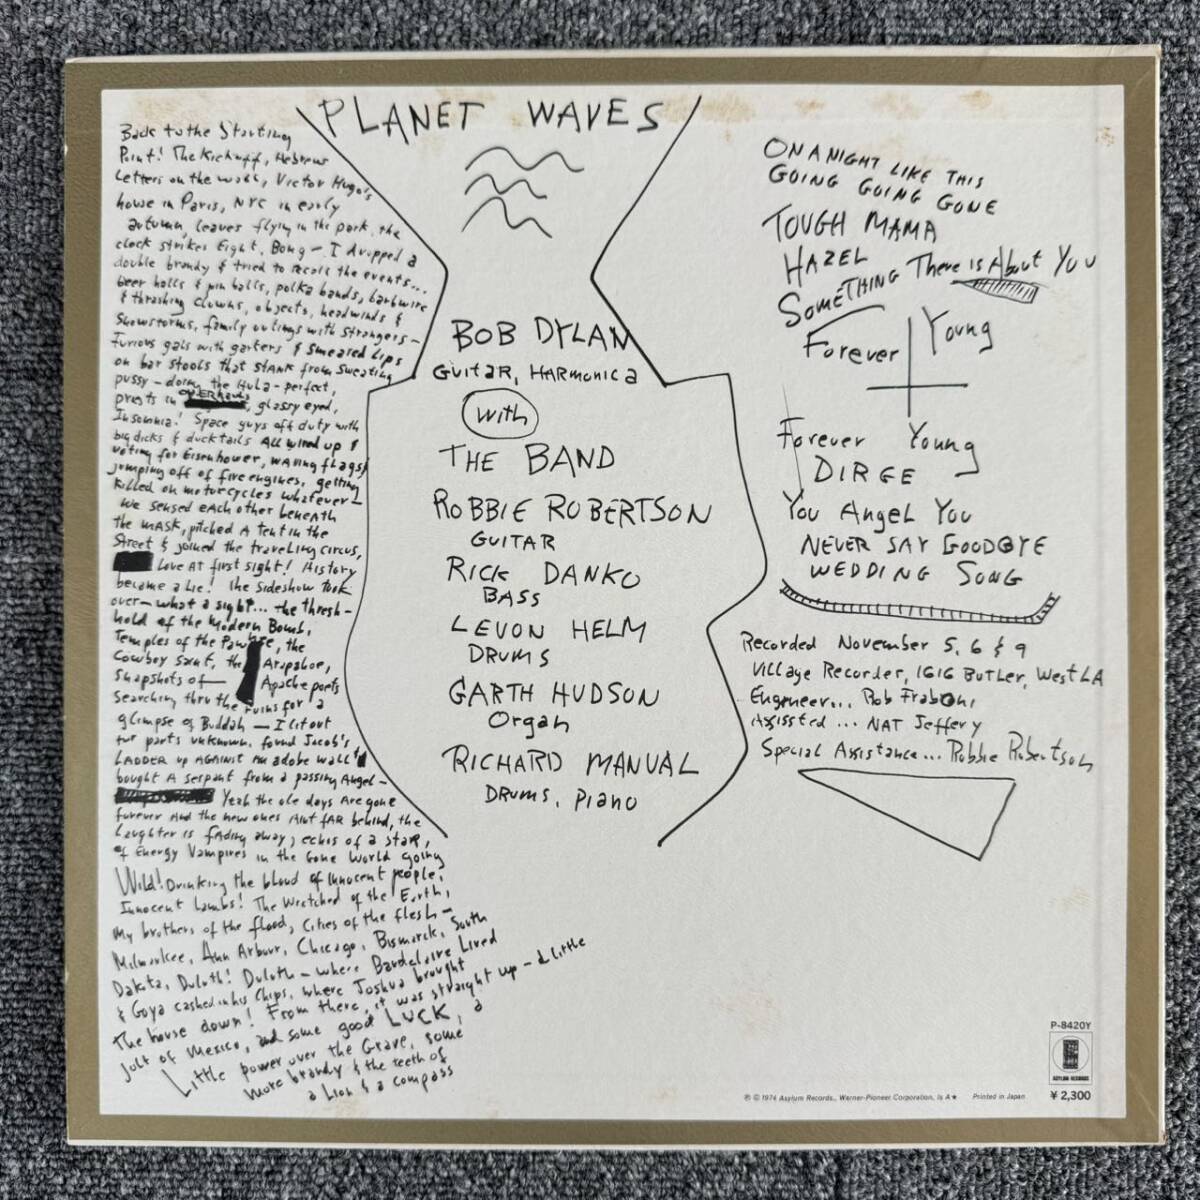 PLANET WAVES
Back to the Starting
Point! The Kickoff, Hebrew
Letters on the wall, Victor Hugo's
house in Paris, NYC in early
autumn, leaves flying in the park, the
clock strikes Eight, Bong — I dropped a
double brandy & tried to recall the events...
beer halls & pin balls, polka bands, barbwire
& thrashing clowns, objects, headwinds &
Snowstorms, family outings with strangers —
Furious gals with garters & smeared Lips
on bar stools that stank from sweating
pussy — doing the Hula — perfect,
prests in overhauls, glassy eyed,
Insomnia! Space guys off duty with
big dicks & ducktails All wired up &
voting for Eisenhower, waving flags &
jumping off of fire engines, getting
killed on motorcycles whatever —
We sensed each other beneath
the mask, pitched a tent in the
Street & joined the traveling circus,
Love at first sight! History
became a Lie! The sideshow took
over — what a sight... the thresh-
hold of the Modern Bomb,
Temples of the Pawnee, the
Cowboy saint, the Arapahoe,
Snapshots of — Apache poets
searching thru the ruins for a
glimpse of Buddah — I lit out
for parts unknown, found Jacob's
Ladder up against an adobe wall &
bought a serpant from a passing Angel —
Yeah the ole days Are gone
forever And the new ones Aint far behind, the
Laughter is fading away, echos of a star,
of Energy Vampires in the Gone World going
Wild! Drinking the blood of innocent people,
Innocent Lambs! The Wretched of the Earth,
My brothers of the flood, Cities of the flesh —
Milwaukee, Ann Arbour, Chicago, Bismarck, South
Dakota, Duluth! Duluth — where Baudelaire Lived
& Goya cashed in his Chips, where Joshua brought
The house down! From there, it was straight up — a little
jolt of Mexico, and some good LUCK, a
Little power over the Grave, some
more brandy & the teeth of
a Lion & a compass
BOB DYLAN
GUITAR, HARMONICA
With
THE BAND
ROBBIE ROBERTSON
GUITAR
RICK DANKO
BASS
LEVON HELM
DRUMS
GARTH HUDSON
Organ
RICHARD MANUAL
DRUMS, Piano
ON A NIGHT LIKE THIS
GOING GOING GONE
TOUGH MAMA
HAZEL
SOMETHING There is About You
Forever Young
Forever Young
DIRGE
You Angel You
NEVER SAY GOODBYE
WEDDING SONG
Recorded November 5, 6 & 9
Village Recorder, 1616 BUTLER, West LA
Engineer... Rob Fraboni
Assissted ... NAT Jeffery
Special Assistance... Robbie Robertson
P-8420Y
ASYLUM RECORDS
¥2,300
℗ © 1974 Asylum Records., Warner-Pioneer Corporation, Is A★ Printed in Japan